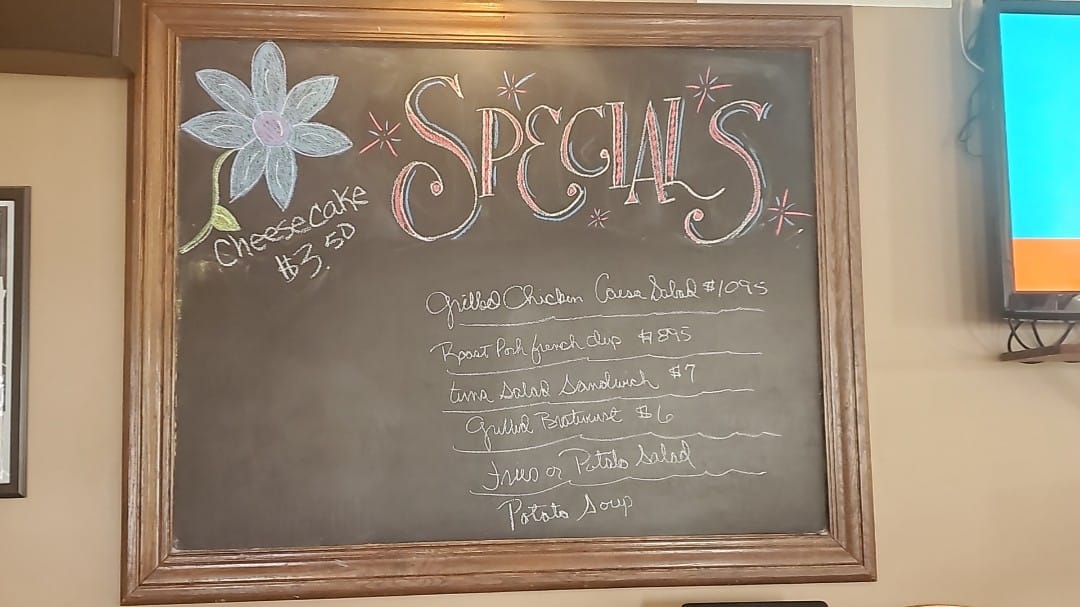 SPECIALS
Cheesecake
$3.50
Grilled Chicken Caesa Salad $1095
Roast Pork french dip $895
tuna Salad Sandwich $7
Grilled Bratwurst $6
Fries or Potato Salad
Potato Soup